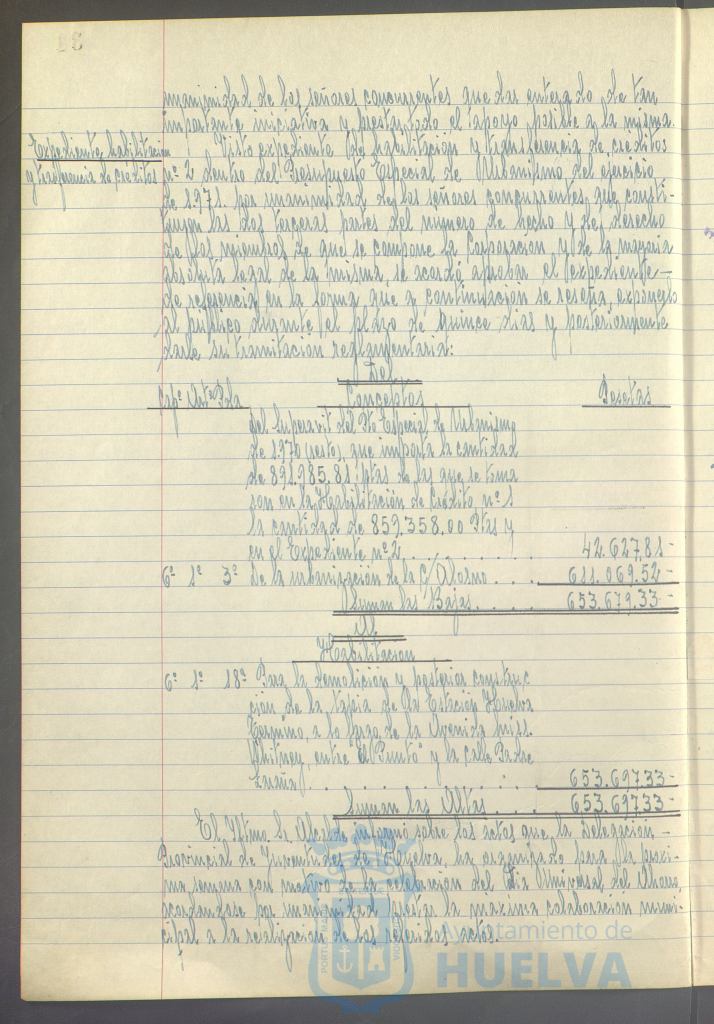 31
unanimidad de los señores concurrentes quedar enterado de tan
importante iniciativa y prestar todo el apoyo posible a la misma.
Expediente habilitacion
y trasferencia de creditos
Visto expediente de habilitacion y transferencia de creditos
nº 2 dentro del Presupuesto Especial de Urbanismo del ejercicio
de 1971. por unanimidad de los señores concurrentes que consti-
tuyen las dos terceras partes del numero de hecho y de derecho
de los miembros de que se compone la Corporación y de la mayoria
absoluta legal de la misma, se acordó aprobar el expediente-
de referencia en la forma que a continuacion se reseña, exponerlo
al público durante el plazo de quince dias y posteriormente
darle su tramitacion reglamentaria:
Del
Capº Artº Pda Conceptos Pesetas
del Superavit del Pto Especial de Urbanismo
de 1970 (resto), que importa la cantidad
de 891.985.81 ptas de las que se toma
ron en la Habilitación de Credito nº 1
la cantidad de 859.358.00 Ptas y
en el Expediente nº 2 . . . . . . . . . . 42.627.81-
6º 1º 3º De la urbanización de la C/ Alosno . . . . 611.069.52-
Suman las Bajas . . . . 653.679.33-
Al
Habilitacion
6º 1º 18º Para la demolición y posterior construc
ción de la tapia de la Estación Huelva
Termino, a lo largo de la Avenida Miss.
Whitney, entre "El Punto" y la calle Padre
Laraña . . . . . . . . . . 653.69733-
Suman las Altas . . . . 653.69733-
El Iltmo Sr Alcalde informó sobre los actos que la Delegación-
Provincial de Juventudes de Huelva, ha organizado para la proxi-
ma semana con motivo de la celebracion del Dia Universal del Ahorro,
acordandose por unanimidad prestar la maxima colaboracion muni-
cipal a la realización de los referidos actos.
Ayuntamiento de
HUELVA